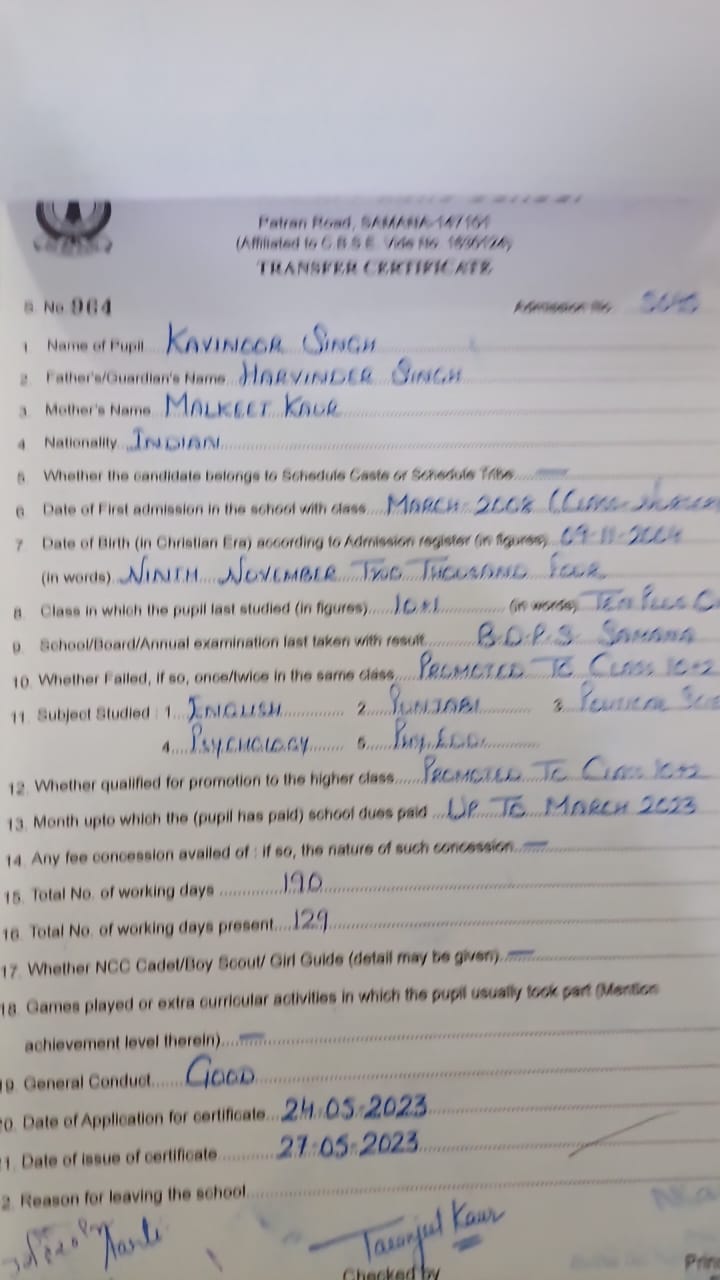 Patran Road, SAMANA-147101
(Affiliated to C.B.S.E. Vide No.
TRANSFER CERTIFICATE
S. No. 964 Admission No.
1. Name of Pupil KAVINOOR SINGH
2. Father's/Guardian's Name HARVINDER SINGH
3. Mother's Name MALKEET KAUR
4. Nationality INDIAN
5. Whether the candidate belongs to Schedule Caste or Schedule Tribe
6. Date of First admission in the school with class MARCH-2008 (CLASS-
7. Date of Birth (in Christian Era) according to Admission register (in figures) 09-11-2004
(in words) NINTH NOVEMBER TWO THOUSAND FOUR
8. Class in which the pupil last studied (in figures) 10+1 (in words) TEN PLUS
9. School/Board/Annual examination last taken with result B.D.P.S SAMANA
10. Whether Failed, if so, once/twice in the same class PROMOTED TO CLASS 10+2
11. Subject Studied : 1. ENGLISH 2. PUNJABI 3. POLITICAL
4. PSYCHOLOGY 5. PHY. EDU.
12. Whether qualified for promotion to the higher class PROMOTED TO CLASS 10+2
13. Month upto which the (pupil has paid) school dues paid UP TO MARCH 2023
14. Any fee concession availed of : if so, the nature of such concession
15. Total No. of working days 190
16. Total No. of working days present 129
17. Whether NCC Cadet/Boy Scout/ Girl Guide (detail may be given)
18. Games played or extra curricular activities in which the pupil usually took part (Mention
achievement level therein)
19. General Conduct GOOD
0. Date of Application for certificate 24-05-2023
1. Date of issue of certificate 27-05-2023
2. Reason for leaving the school
Taranjeet Kaur
Checked by